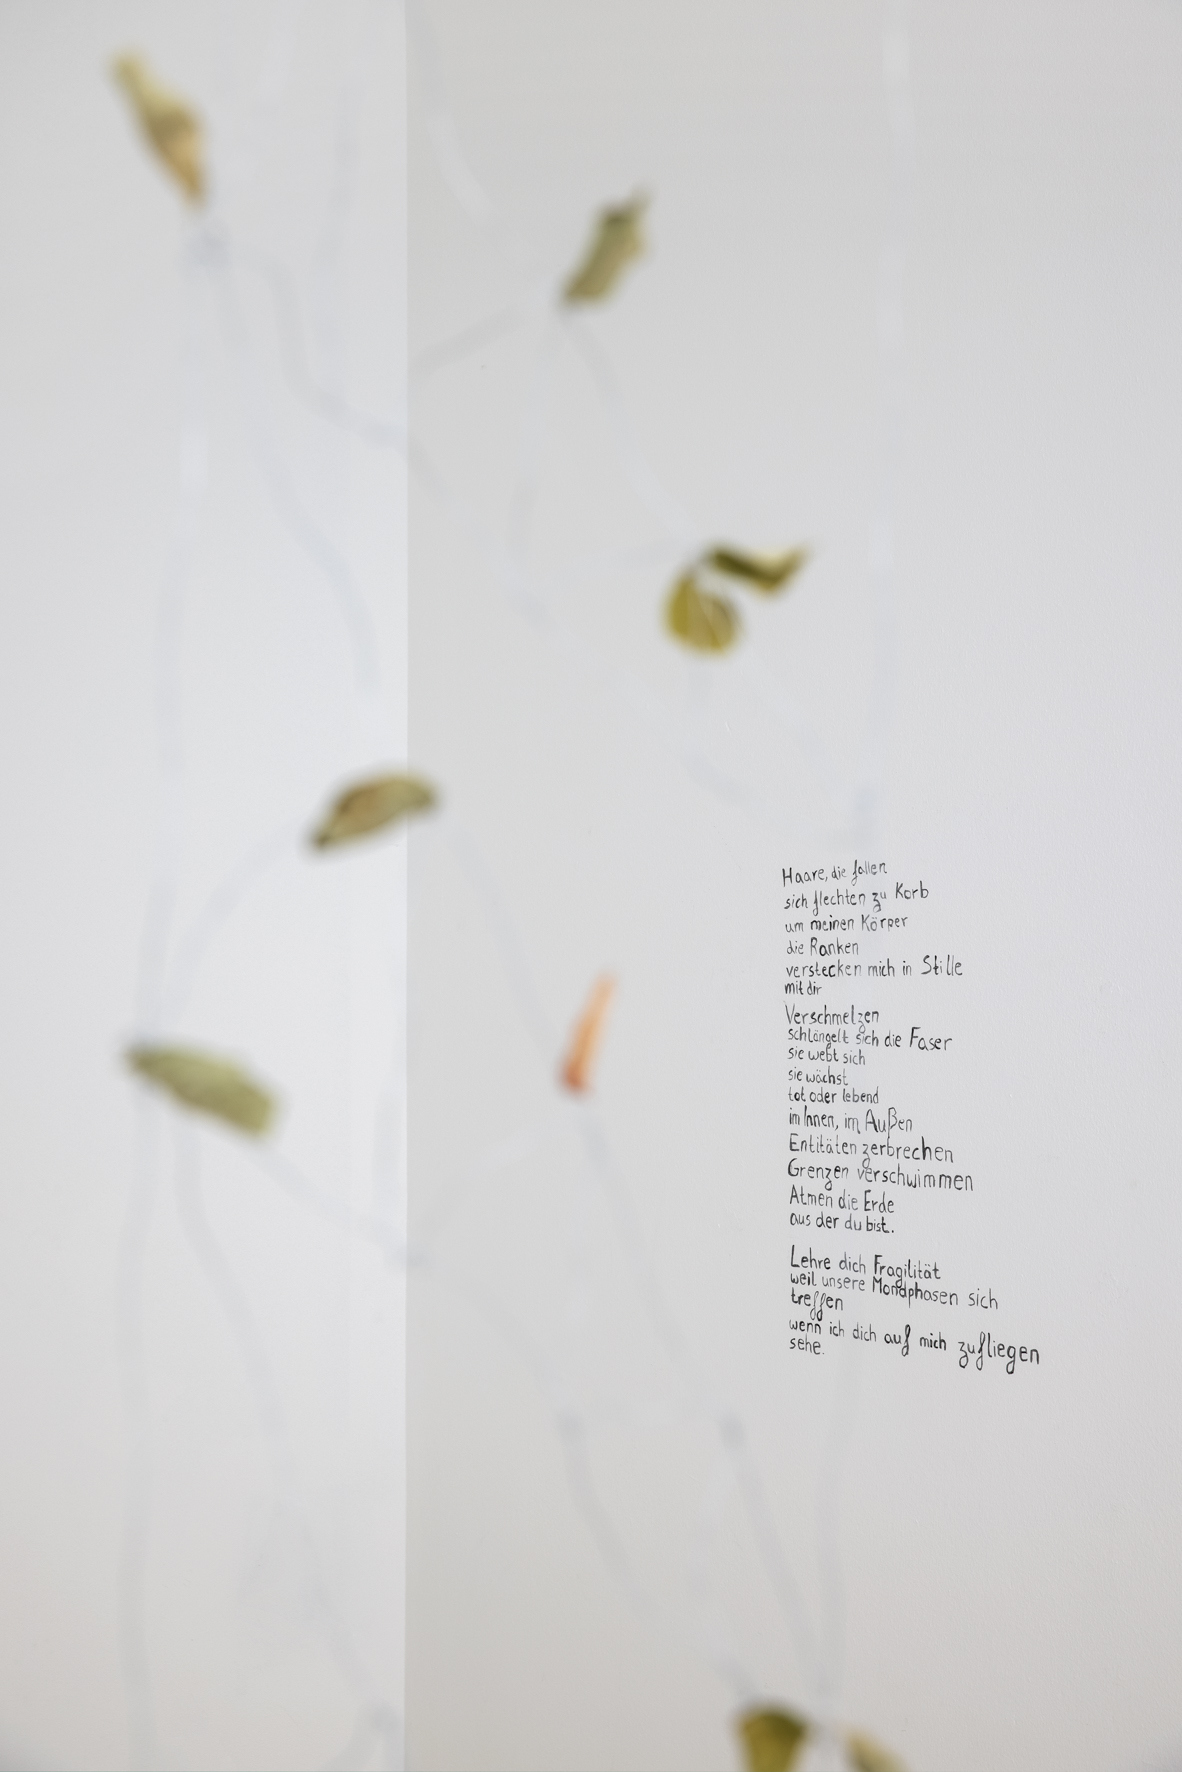 Haare, die fallen
sich flechten zu Korb
um meinen Körper
die Ranken
verstecken mich in Stille
mit dir
Verschmelzen
schlängelt sich die Faser
sie webt sich
sie wächst
tot oder lebend
im Innen, im Außen
Entitäten zerbrechen
Grenzen verschwimmen
Atmen die Erde
aus der du bist.
Lehre dich Fragilität
weil unsere Mondphasen sich
treffen
wenn ich dich auf mich zufliegen
sehe.